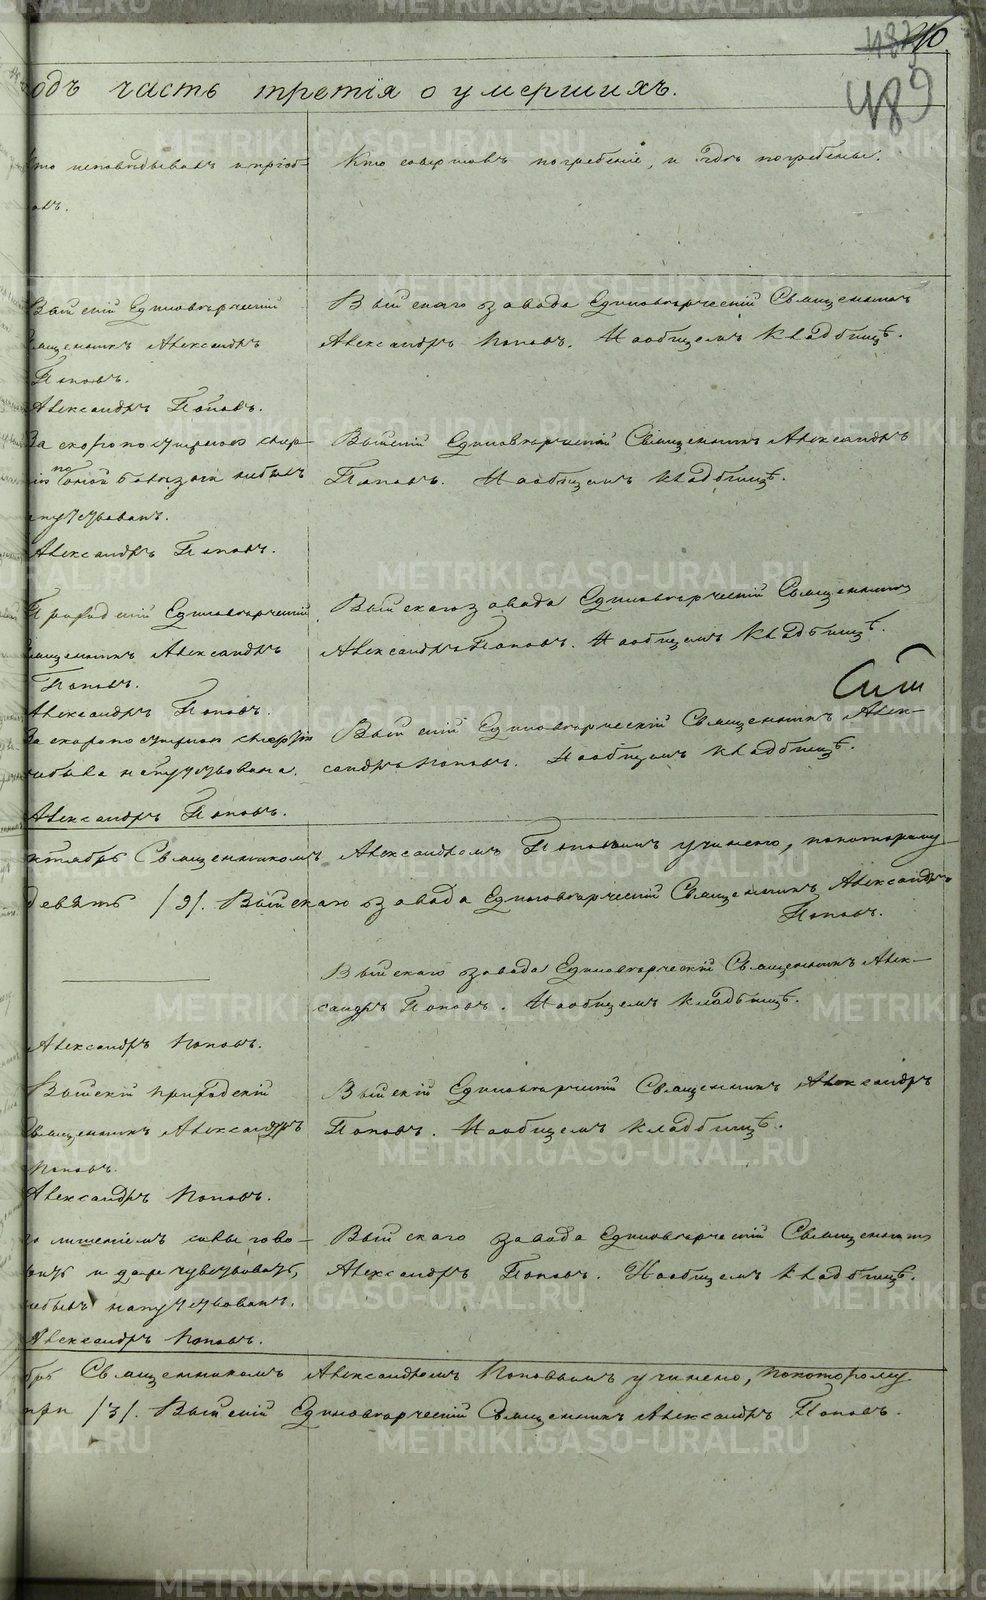 489
одъ часть третія о умершихъ.
кто исповѣдывалъ и пріоб-
алъ.
Кто совершалъ погребеніе, и гдѣ погребены.
Выйскій Единовѣрческій
Священникъ Александръ
Поповъ.
Александръ Поповъ.
Выйскаго завода Единовѣрческій Священникъ
Александръ Поповъ. На общемъ кладбищѣ.
За скоропостижною смер-
не былъ
напутствованъ.
Александръ Поповъ.
Выйскій Единовѣрческій Священникъ Александръ
Поповъ. На общемъ кладбищѣ.
Приходскій Единовѣрческій
Священникъ Александръ
Поповъ.
Александръ Поповъ.
Выйскаго завода Единовѣрческій Священникъ
Александръ Поповъ. На общемъ кладбищѣ.
За скоропостижною смертію
небыла напутствована.
Александръ Поповъ.
Выйскій Единовѣрческій Священникъ Алек-
сандръ Поповъ. На общемъ кладбищѣ.
октябрь Священникомъ Александромъ Поповымъ учинено, по которому
девять /9/. Выйскаго завода Единовѣрческій Священникъ Александръ
Поповъ.
Александръ Поповъ.
Выйскаго завода Единовѣрческій Священникъ Алек-
сандръ Поповъ. На общемъ кладбищѣ.
Выйскій приходскій
Священникъ Александръ
Поповъ.
Александръ Поповъ.
Выйскій Единовѣрческій Священникъ Александръ
Поповъ. На общемъ кладбищѣ.
за лишеніемъ силы гово-
рить и даже чувствовать,
небылъ напутствованъ.
Александръ Поповъ.
Выйскаго завода Единовѣрческій Священникъ
Александръ Поповъ. На общемъ кладбищѣ.
брь Священникомъ Александромъ Поповымъ учинено, по которому
три /3/. Выйскій Единовѣрческій Священникъ Александръ Поповъ.
METRIKI.GASO-URAL.RU